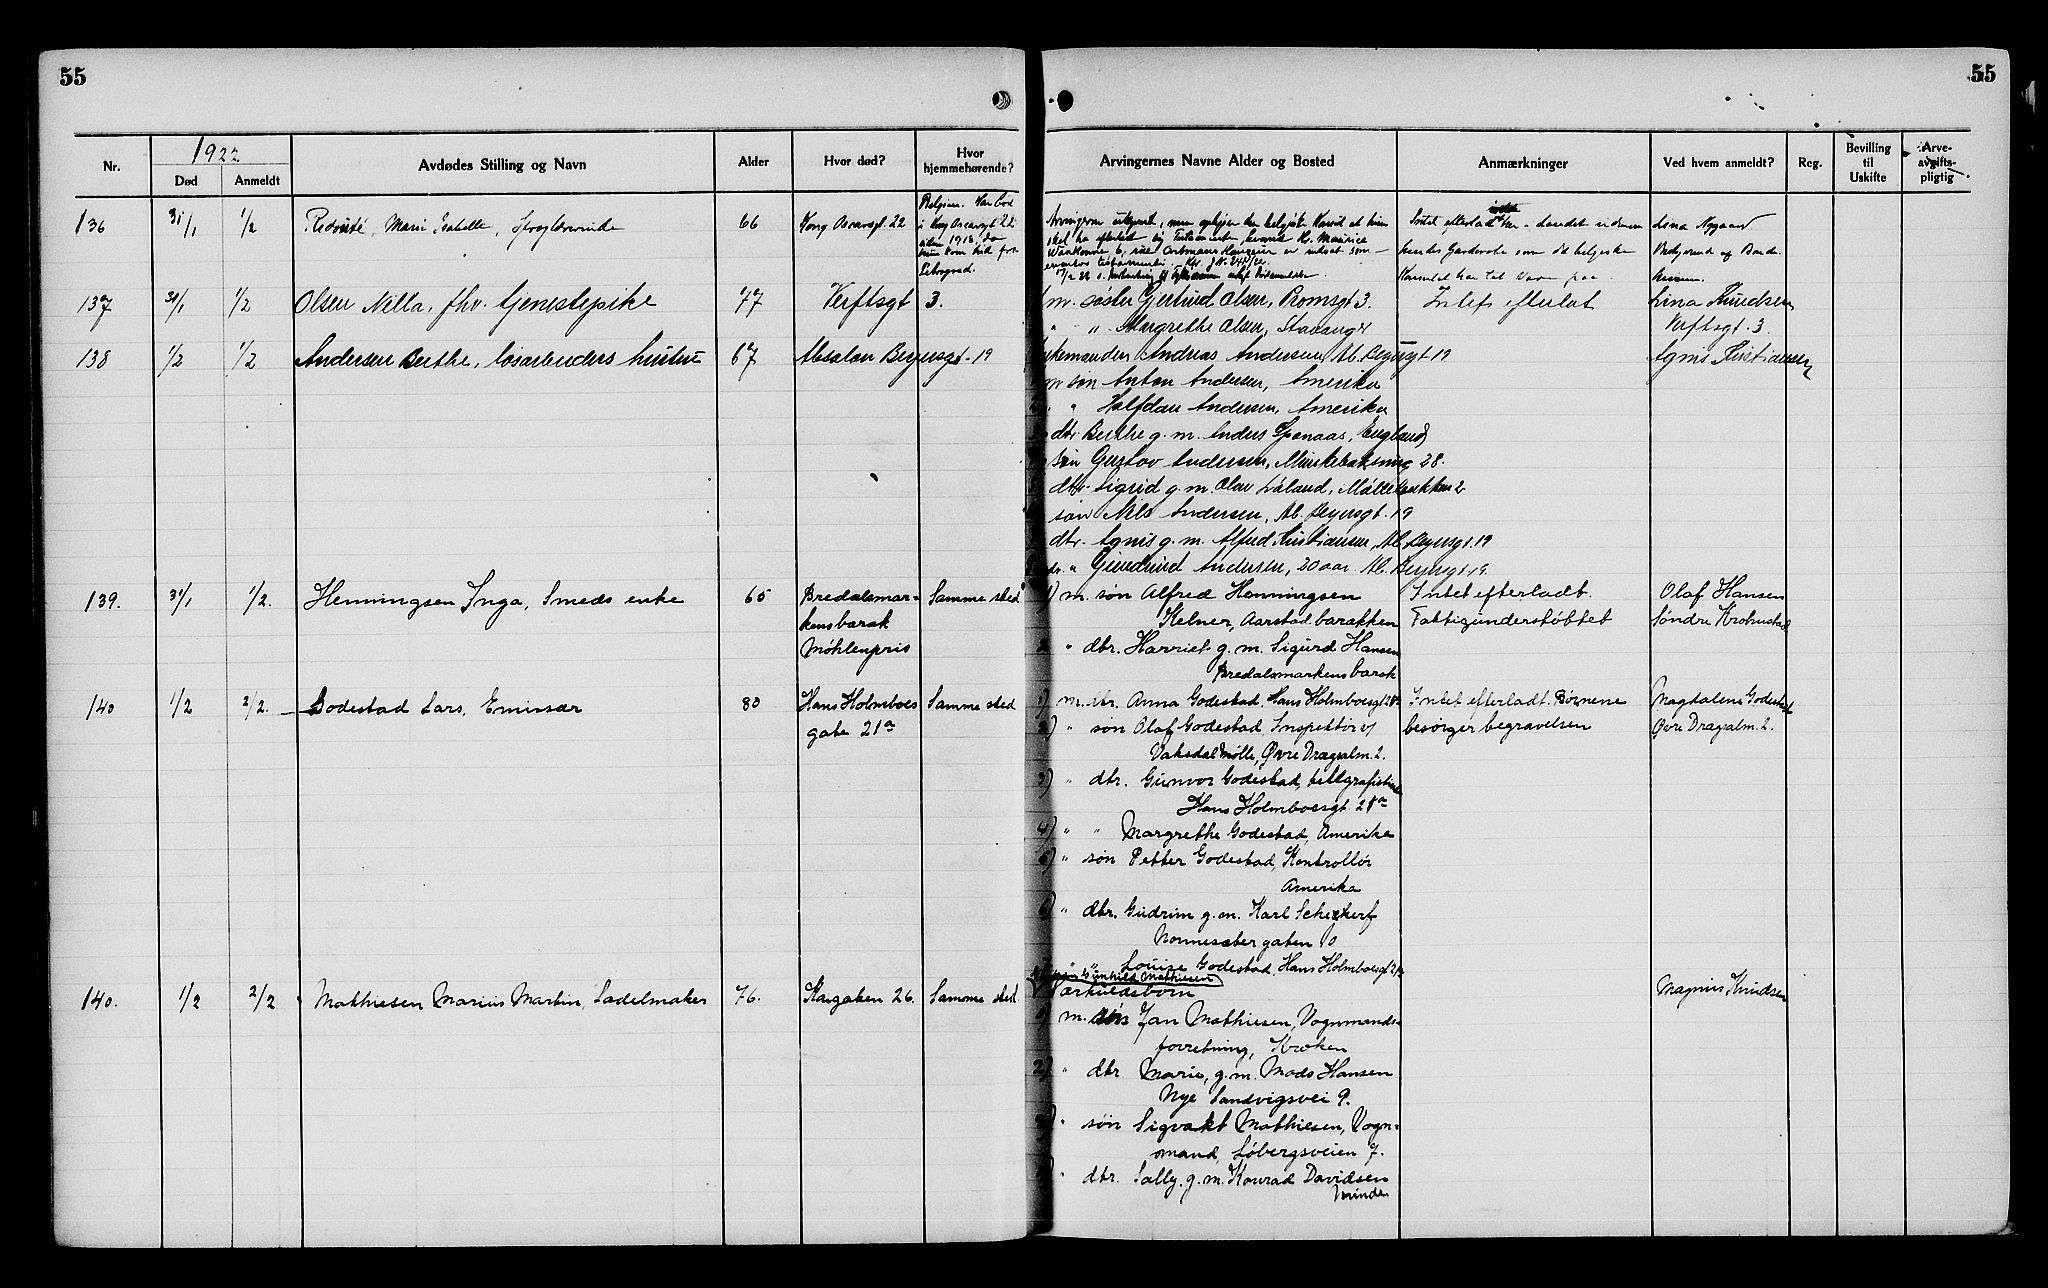 55
55
Nr.
1922
Død
Anmeldt
Avdødes Stilling og Navn
Alder
Hvor død?
Hvor
hjemmehørende?
Arvingernes Navne Alder og Bosted
Anmærkninger
Ved hvem anmeldt?
Reg.
Bevilling
til
Uskifte
Arve-
avgifts-
pligtig
136
31/1
1/2
Marie Isabelle,
66
Kong Oscarsgt. 22
Belgien. Har bod
i Kong Oscarsgt 22
siden 1918, da
hun kom hid fra
Petrograd.
Arvingerne ukjent, men oplyser den belgiske Konsul at hun
skal ha efterlatt sig Testament, hvorav Hr. Maurice
hendes Garderobe som det belgiske
Konsulat har tat vare paa
Lina Nygaard
137
31/1
1/2
Olsen Nilla, fhv. tjenestepike
77
Verftsgt 3.
m. søster Gjertrud Olsen, Romsgt 3.
" " Margrethe Olsen, Stavanger
Intet efterlat
Lina Knudsen
Verftsgt. 3.
138
1/2
1/2
Andersen Berthe, løsarbeiders hustru
67
Absalon Beyersgt. 19
Enkemanden Andreas Andersen, Ab. Beyersgt 19
m søn Anton Andersen, Amerika
" " Halfdan Andersen, Amerika
dtr. Berthe g. m. Anders Grønaas, England
søn Gustav Andersen, Munkebæksmug 28.
dtr. Sigrid g. m. Olav Løland, Møllebakken 2
søn Nils Andersen, Ab. Beyersgt. 19
dtr. Agnis g. m. Alfred Kristiansen, Ab. Beyersgt. 19
dr. " Gundrund Andersen, 20 aar Ab. Beyersgt 19.
Agnis Kristiansen
139.
31/1
1/2.
Henningsen Inga, Smeds enke
65
Bredalsmar-
kens barak
Møhlenpris
Samme sted
1) m. søn Alfred Henningsen
Kelner, Aarstad barakken
2 " dtr. Harriet g. m. Sigurd Hansen
Bredalsmarkens barak
Intet efterladt.
Fattigunderstøttet
Olaf Hansen
Søndre Krohnstad
140
1/2
2/2.
Godestad Lars, Emissær
80
Hans Holmboes
gate 21a
Samme sted
1) m. dtr. Anna Godestad, Hans Holmboesgt 28a
2) " søn Olaf Godestad, Inspektør v/
Vaksdal Mølle, Øvre Dragsalm. 2.
3) " dtr. Gunvor Godestad, tellgrafistinde
Hans Holmboesgt 28a
4) " " Margrethe Godestad, Amerika
5) " søn Petter Godestad, Kontrollør
Amerika
6) " dtr. Gudrun g. m. Karl
Nonneseter gaten 10
" " Louise Godestad, Hans Holmboesgt 21a
Intet efterladt. Børnene
besørger begravelsen
Magdalene Godestad
Øvre Dragsalm. 2.
140.
1/2
2/2
Mathiesen Marius Martin, Sadelmaker
76.
Kongaten 26.
Samme sted
Gunhild Mathiesen
Særkuldsbørn
1) m. søn Jan Mathiesen, Vognmands-
forretning, Kroken
2) " dtr Marie, g. m. Mads Hansen
Nye Sandvigsvei 9.
3) " søn Sigvakt Mathiesen, Vogn-
mand, Løbergsveien 7.
" dtr. Sally. g. m. Konrad Davidsen
Minde
Magnus Knudsen